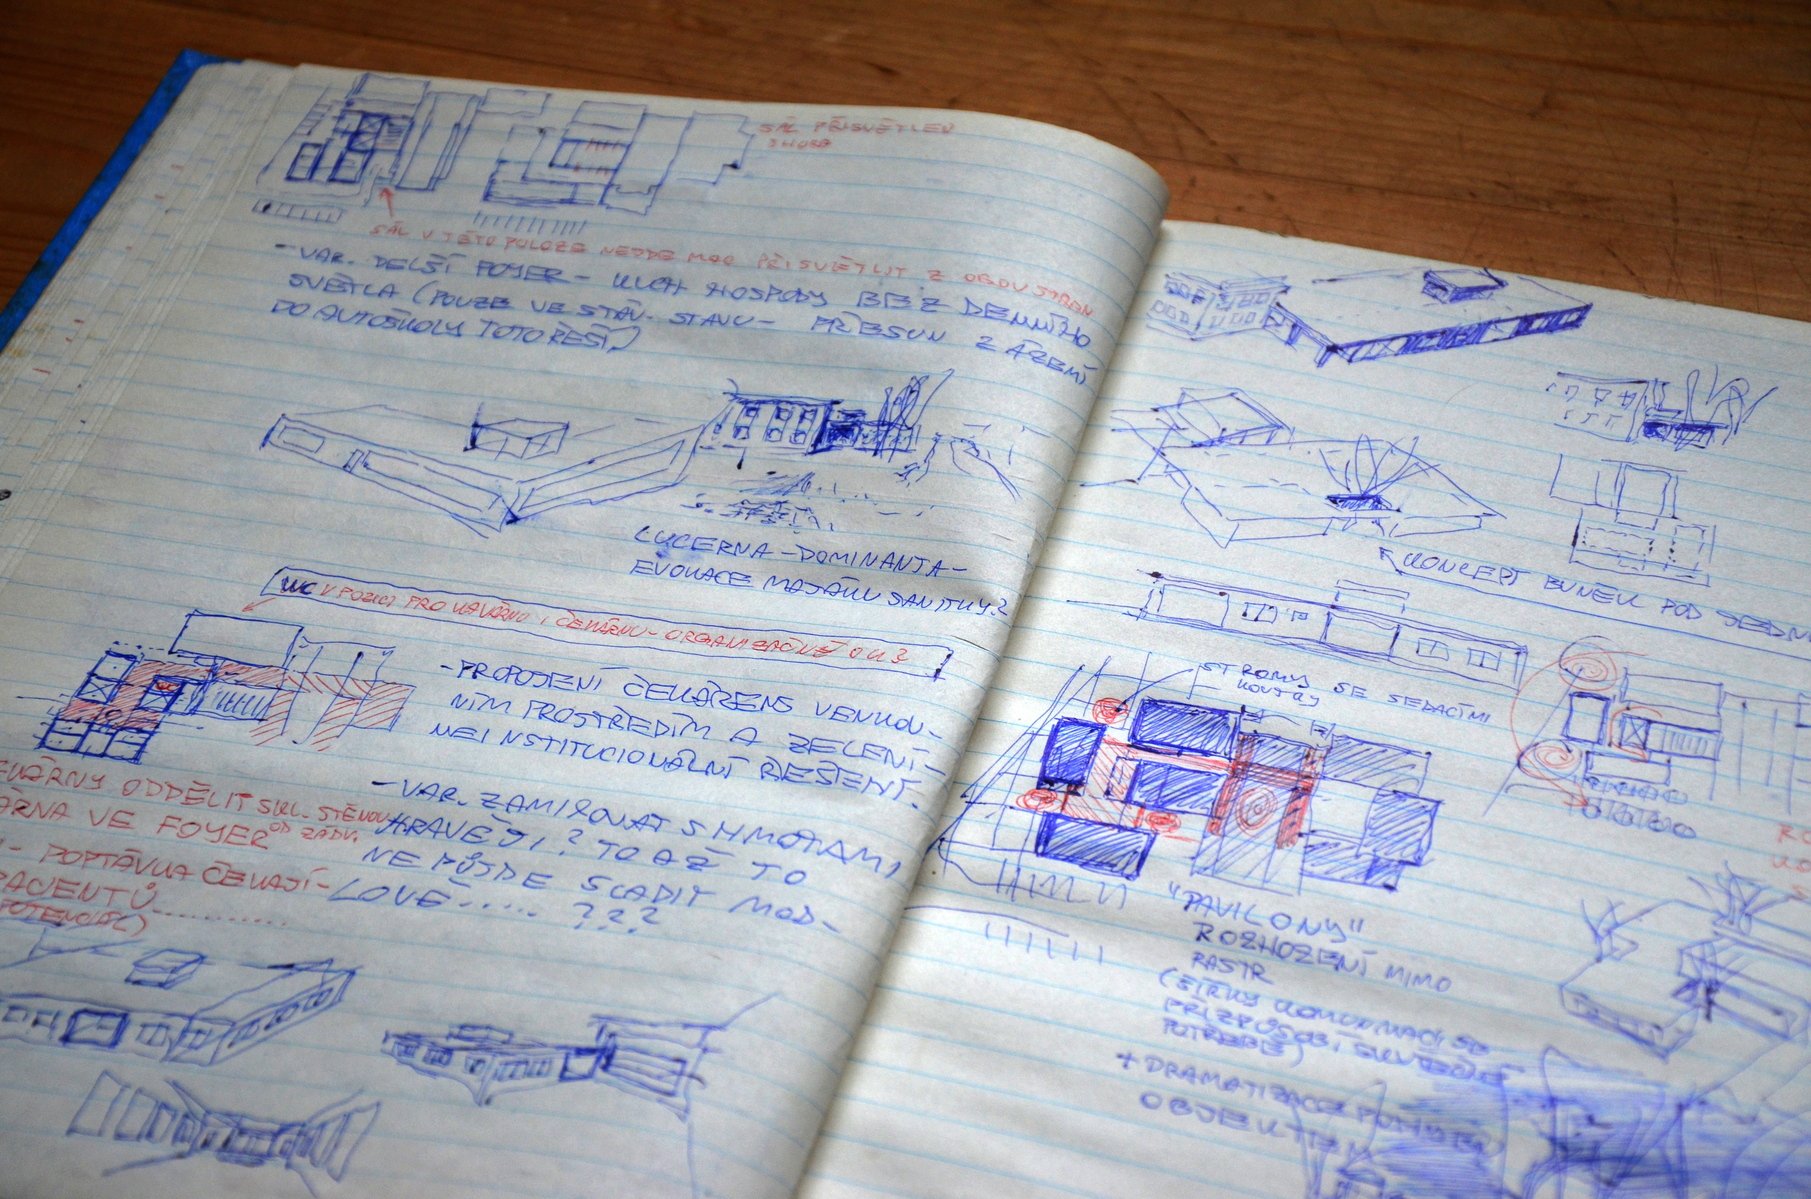 SÁL PŘISVĚTLEN
SHORA
SÁL V TÉTO POLOZE NEJDE MOC PŘISVĚTLIT Z OBOU STRAN
- VAR. DELŠÍ FOYER - KUCH HOSPODY BEZ DENNÍHO
SVĚTLA (POUZE VE STÁV. STAVU - PŘESUN ZÁZEMÍ
DO AUTOŠKOLY TOTO ŘEŠÍ)
LUCERNA - DOMINANTA -
EVOKACE MAJÁKU SANITKY?
WC V POZICI PRO KAVÁRNU I ČEKÁRNU - ORGANIZAČNĚ OK?
- PROPOJENÍ ČEKÁREN S VENKOV-
NÍM PROSTŘEDÍM A ZELENÍ -
NEINSTITUCIONÁLNÍ ŘEŠENÍ.
ODDĚLIT SKL. STĚNOU
VE FOYER OD ZÁDV.
- POPTÁVKA ČEKAJÍ-
PACIENTŮ............
- VAR. ZAMIXOVAT S HMOTAMI
HRAVĚJI? TO AŽ TO
NEPŮJDE SLADIT MOD-
LOVĚ..... ???
KONCEPT BUNĚK POD
STROMY SE SEDACÍMI
KOUTKY
"PAVILONY"
ROZHOZENÍ MIMO
RASTR
(ŠÍŘKY KOMUNIKACÍ SE
PŘIZPŮSOBÍ SKUTEČNÉ
POTŘEBĚ)
+ DRAMATIZACE
OBJEKTEM